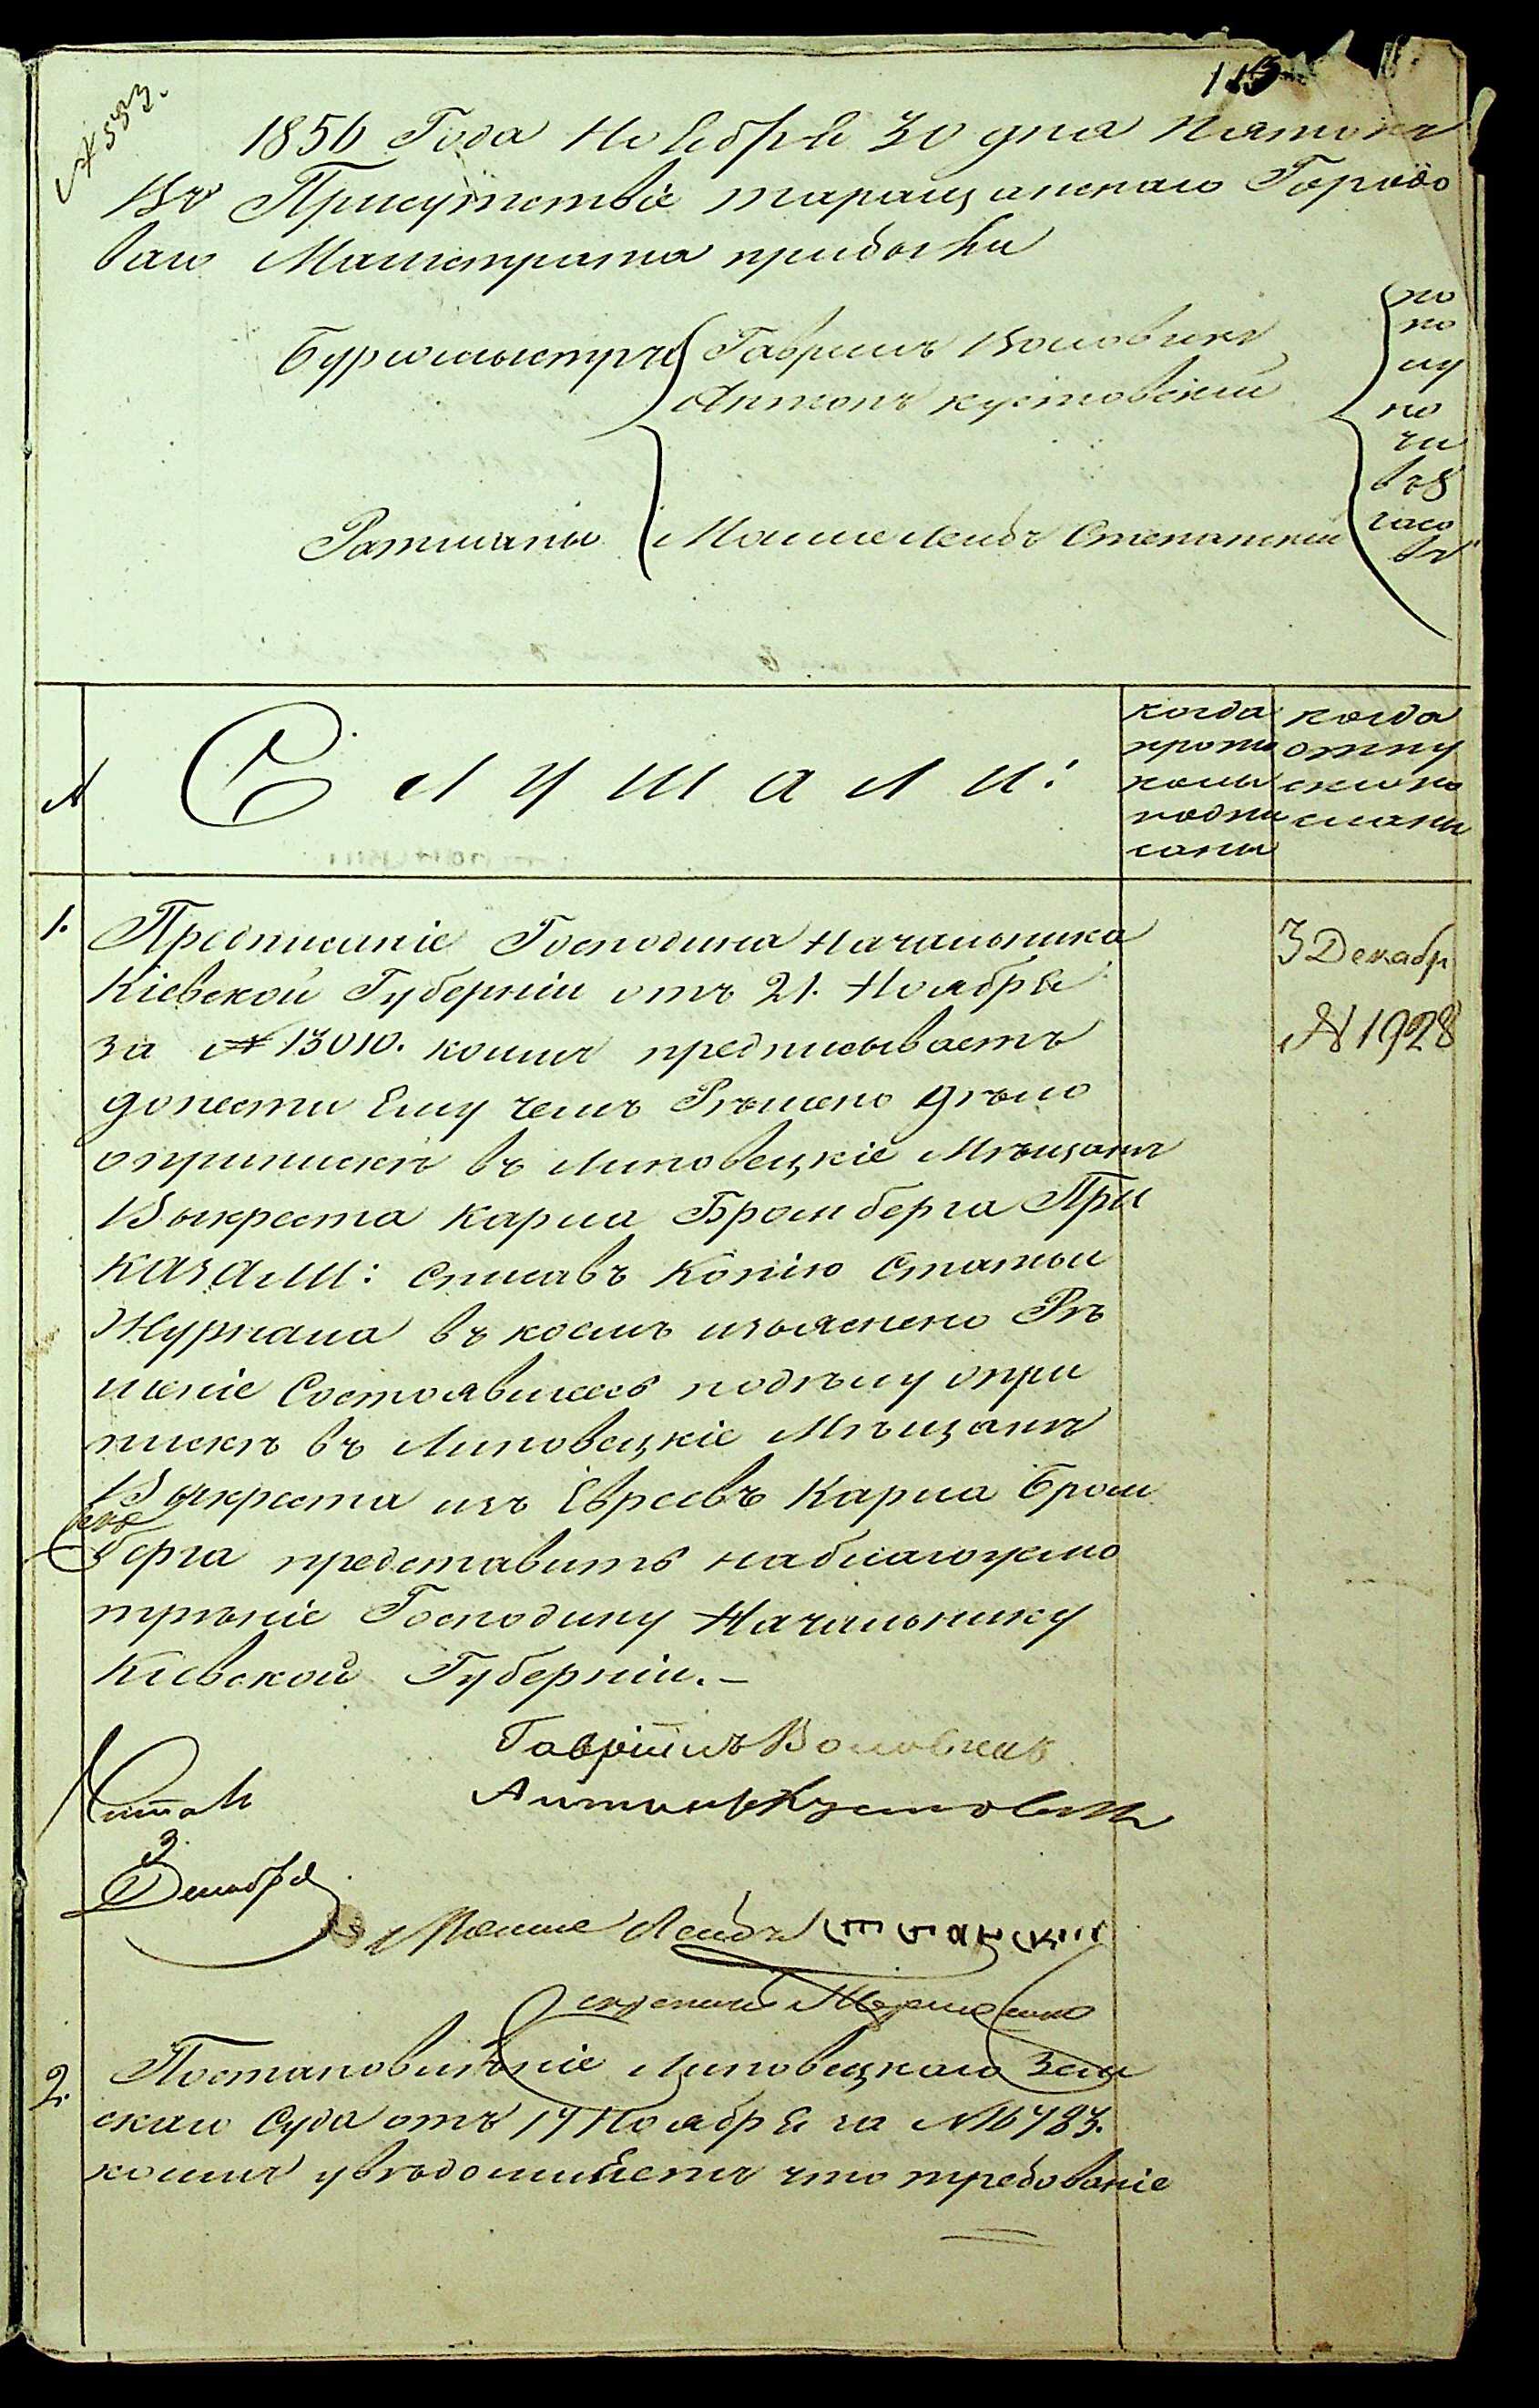 № 533.
115
1856 Года Ноября 30 дня пятокъ
Въ Присутствіе таращанскаго Городо
ваго Магистрата прибыли
Бургомыстры Гаврилъ Воловикъ
Антонъ кустовскій
Ратманы Мошко Лейбъ Степанскій
по
по
лу
но
чи
въ 8
часо
въ
№
Слушали:
когда
прото
колы
подпи
саны
когда
отпу
ски по
сланы
1.
Предписаніе Господина Начальника
Кіевской Губерніи отъ 21. Ноября
за № 13010. коимъ предписываетъ
донести Ему чемъ Рѣшено дѣло
оприпискѣ въ Липовецкіе Мѣщане
Выкреста Карла Бромберга При
казали: списавъ Копію Статьи
Журнала въ коемъ изъяснено Рѣ
шеніе Состоявшееся подѣлу опри
пискѣ въ Липовецкіе Мѣщане
Выкреста изъ Евреевъ Карла Бром
берга представить наблагоусмо
трѣніе Господину Начальнику
Кіевской Губерніи.-
3 Декабр
№ 1928
Гавріилъ Воловикъ
Антонъ Кустовскій
Читалъ
3
Декабря
Мошко Лейбъ Степанскій
секретарь
2.
Постановленіе Липовецкаго Зем
скаго Суда отъ 17 Ноября за № 16783.
коимъ увѣдомляетъ что требованіе